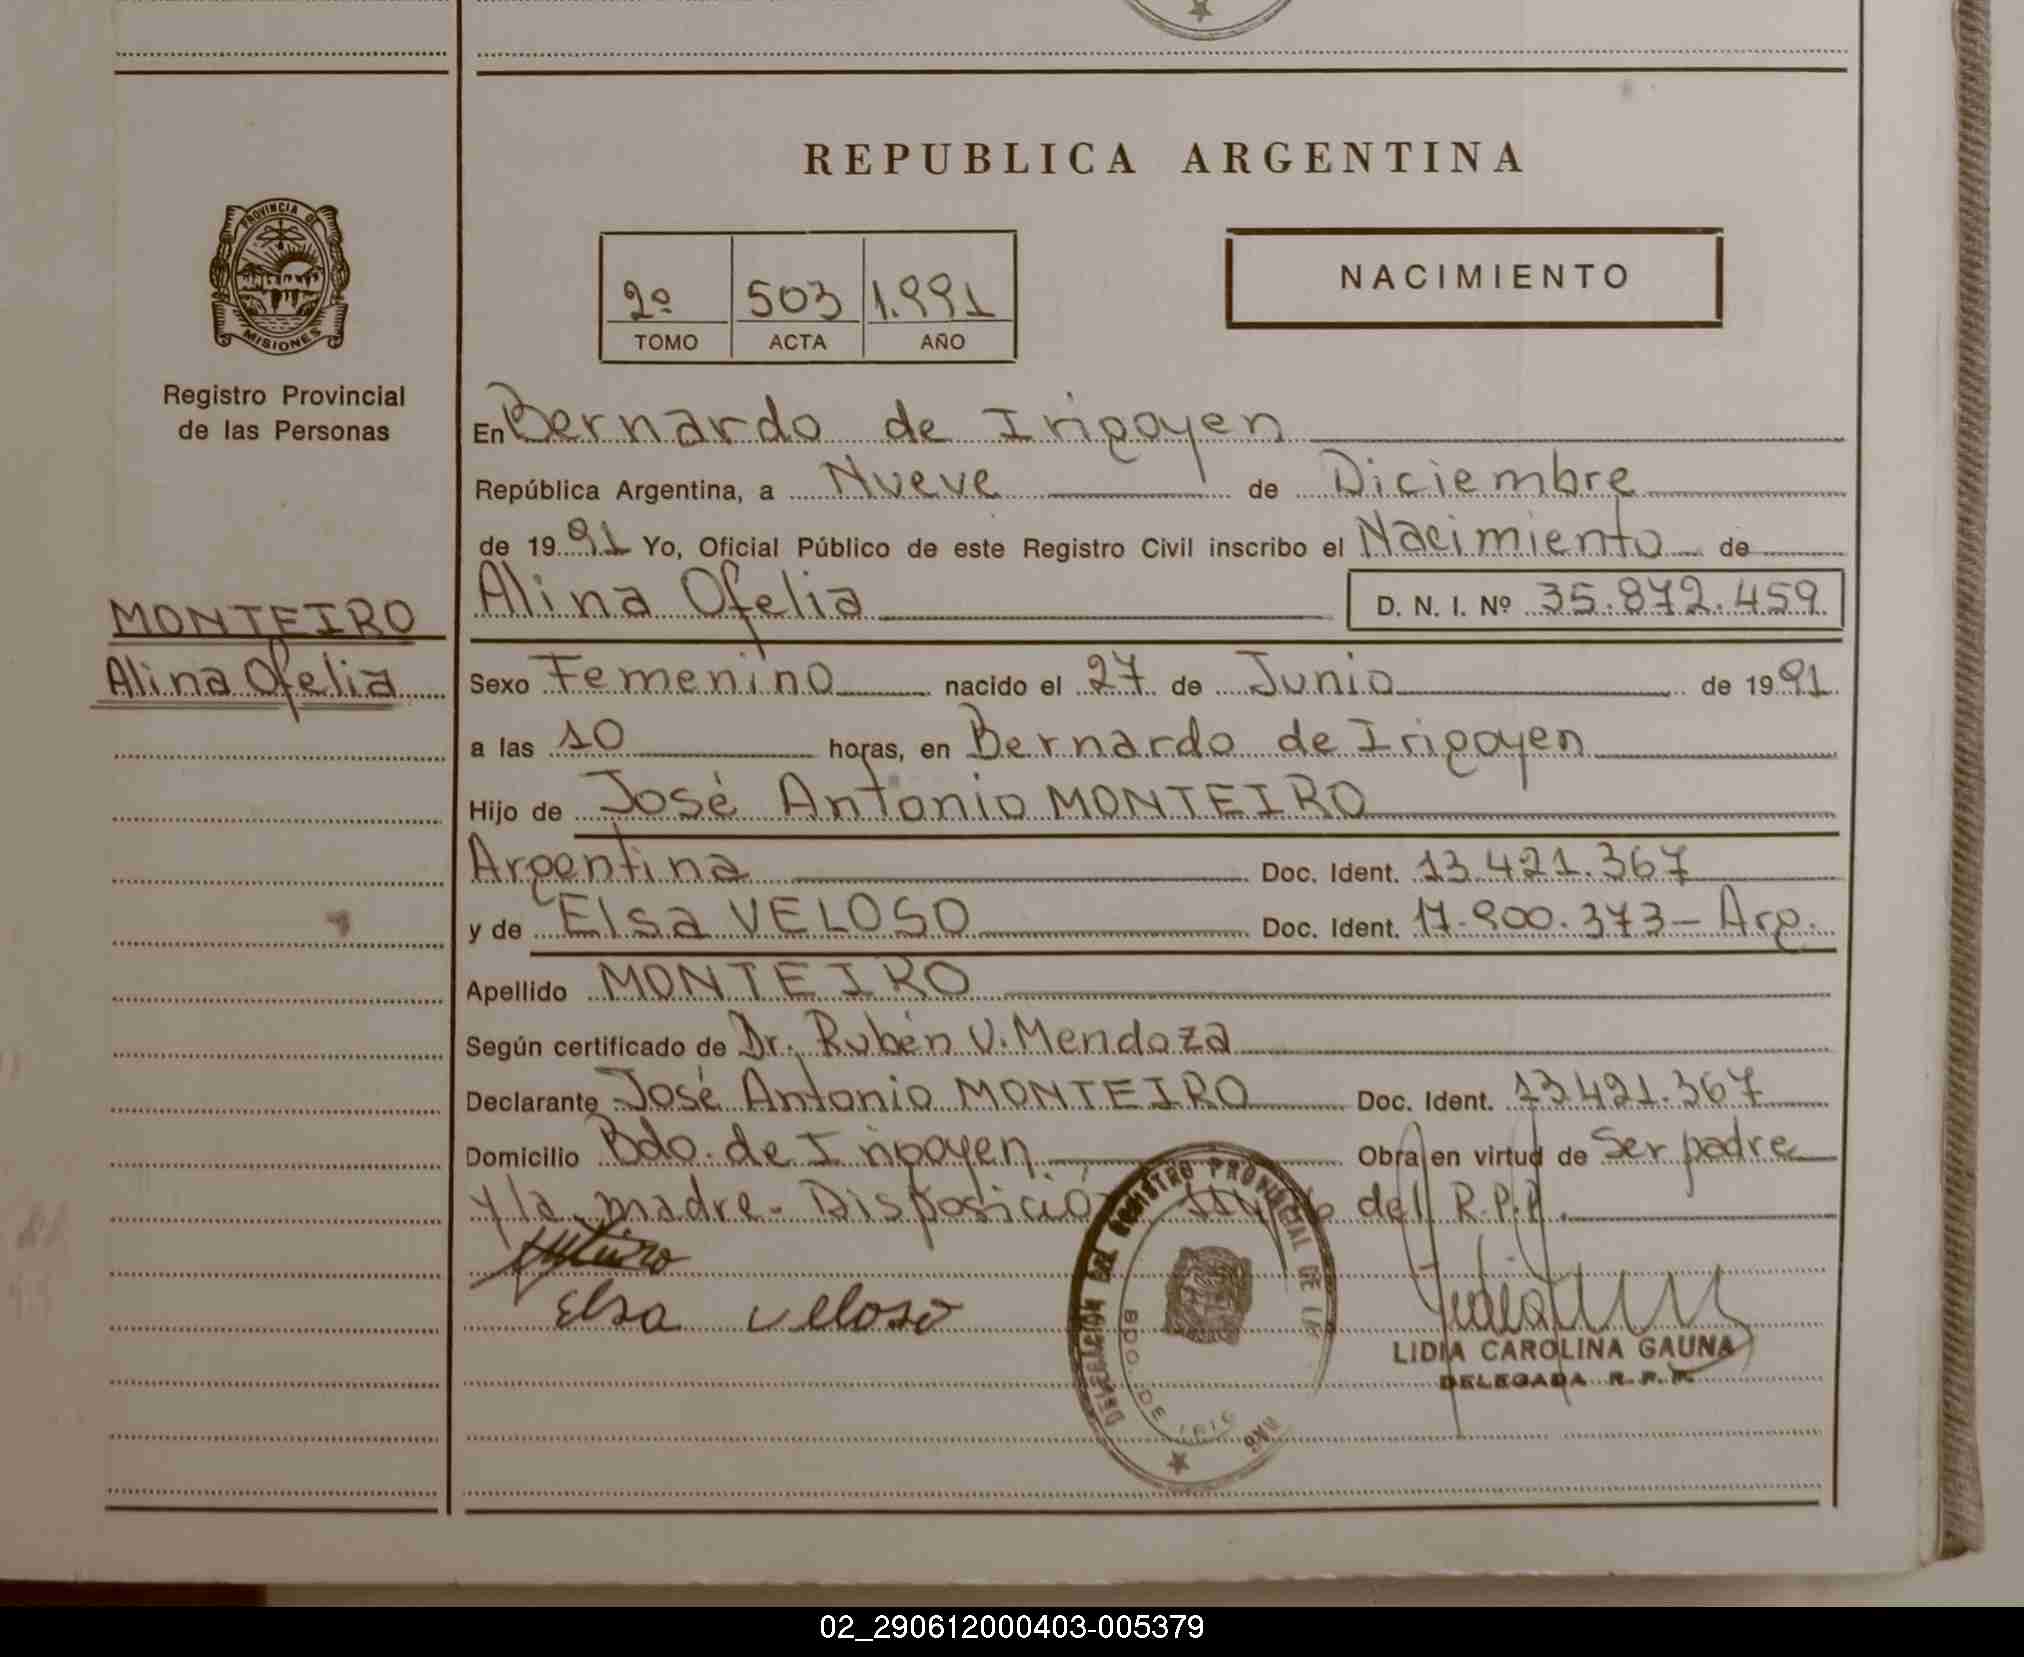 REPUBLICA ARGENTINA
PROVINCIA DE
MISIONES
Registro Provincial
de las Personas
2º 503 1.991
TOMO ACTA AÑO
NACIMIENTO
En Bernardo de Irigoyen
República Argentina, a Nueve de Diciembre
de 1991 Yo, Oficial Público de este Registro Civil inscribo el Nacimiento de
MONTEIRO
Alina Ofelia
Alina Ofelia D. N. I. Nº 35.872.459
Sexo Femenino nacido el 27 de Junio de 1991
a las 10 horas, en Bernardo de Irigoyen
Hijo de José Antonio MONTEIRO
Argentina Doc. Ident. 13.421.367
y de Elsa VELOSO Doc. Ident. 17.900.373 - Arg.
Apellido MONTEIRO
Según certificado de Dr. Rubén V. Mendoza
Declarante José Antonio MONTEIRO Doc. Ident. 13.421.367
Domicilio Bdo. de Irigoyen Obra en virtud de Ser padre
y la madre - Disposición del R.P.P.
Elsa Veloso
DELEGACION DEL REGISTRO PROVINCIAL DE LA
BDO. DE IRIG
LIDIA CAROLINA GAUNA
DELEGADA R. P. P.
02_290612000403-005379